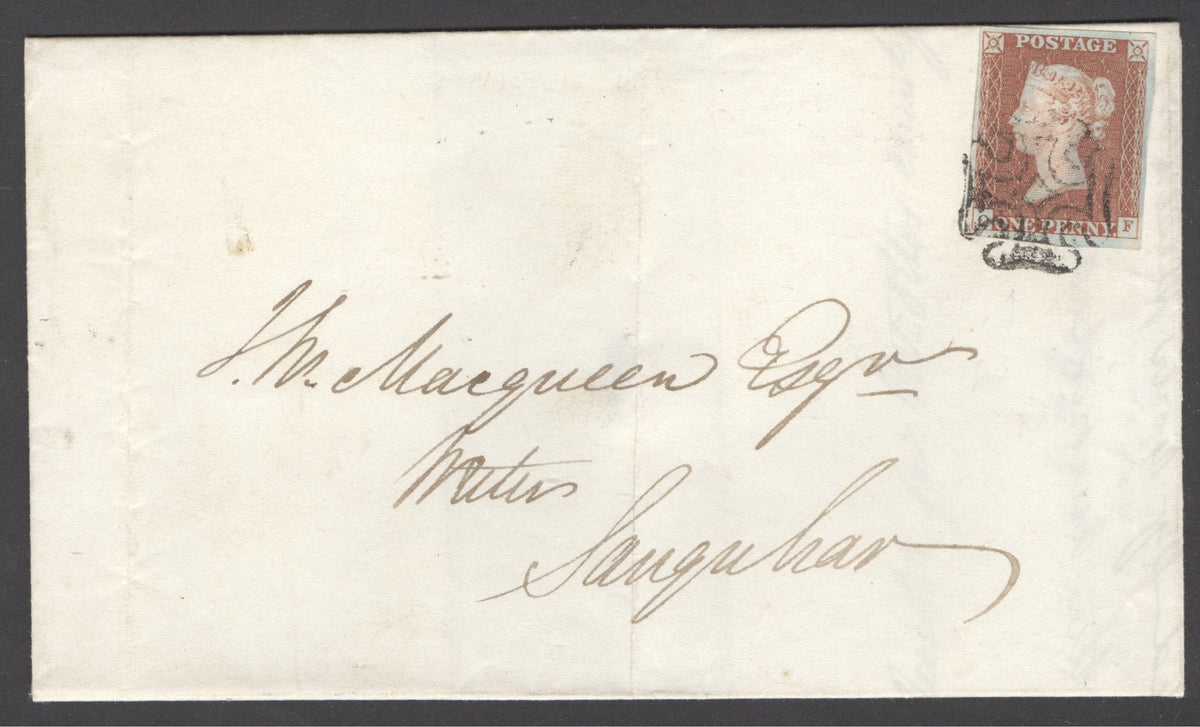 POSTAGE
ONE PENNY F
J. W. Macqueen Esqr
Writer
Sanquhar